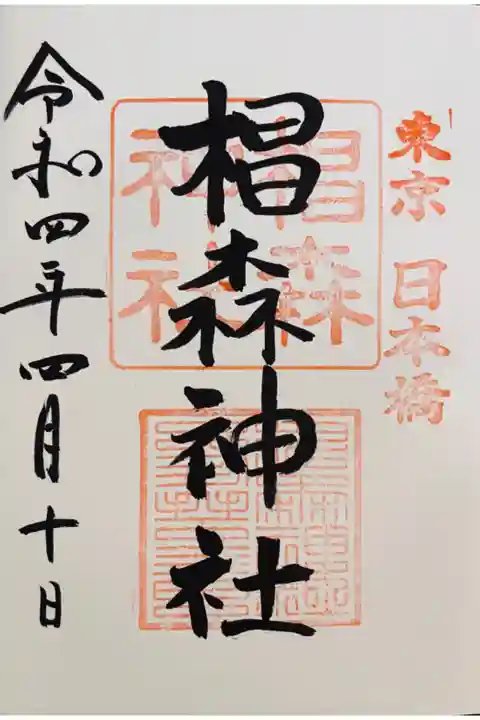 東京 日本橋
椙森神社
椙森
神社
令和四年四月十日